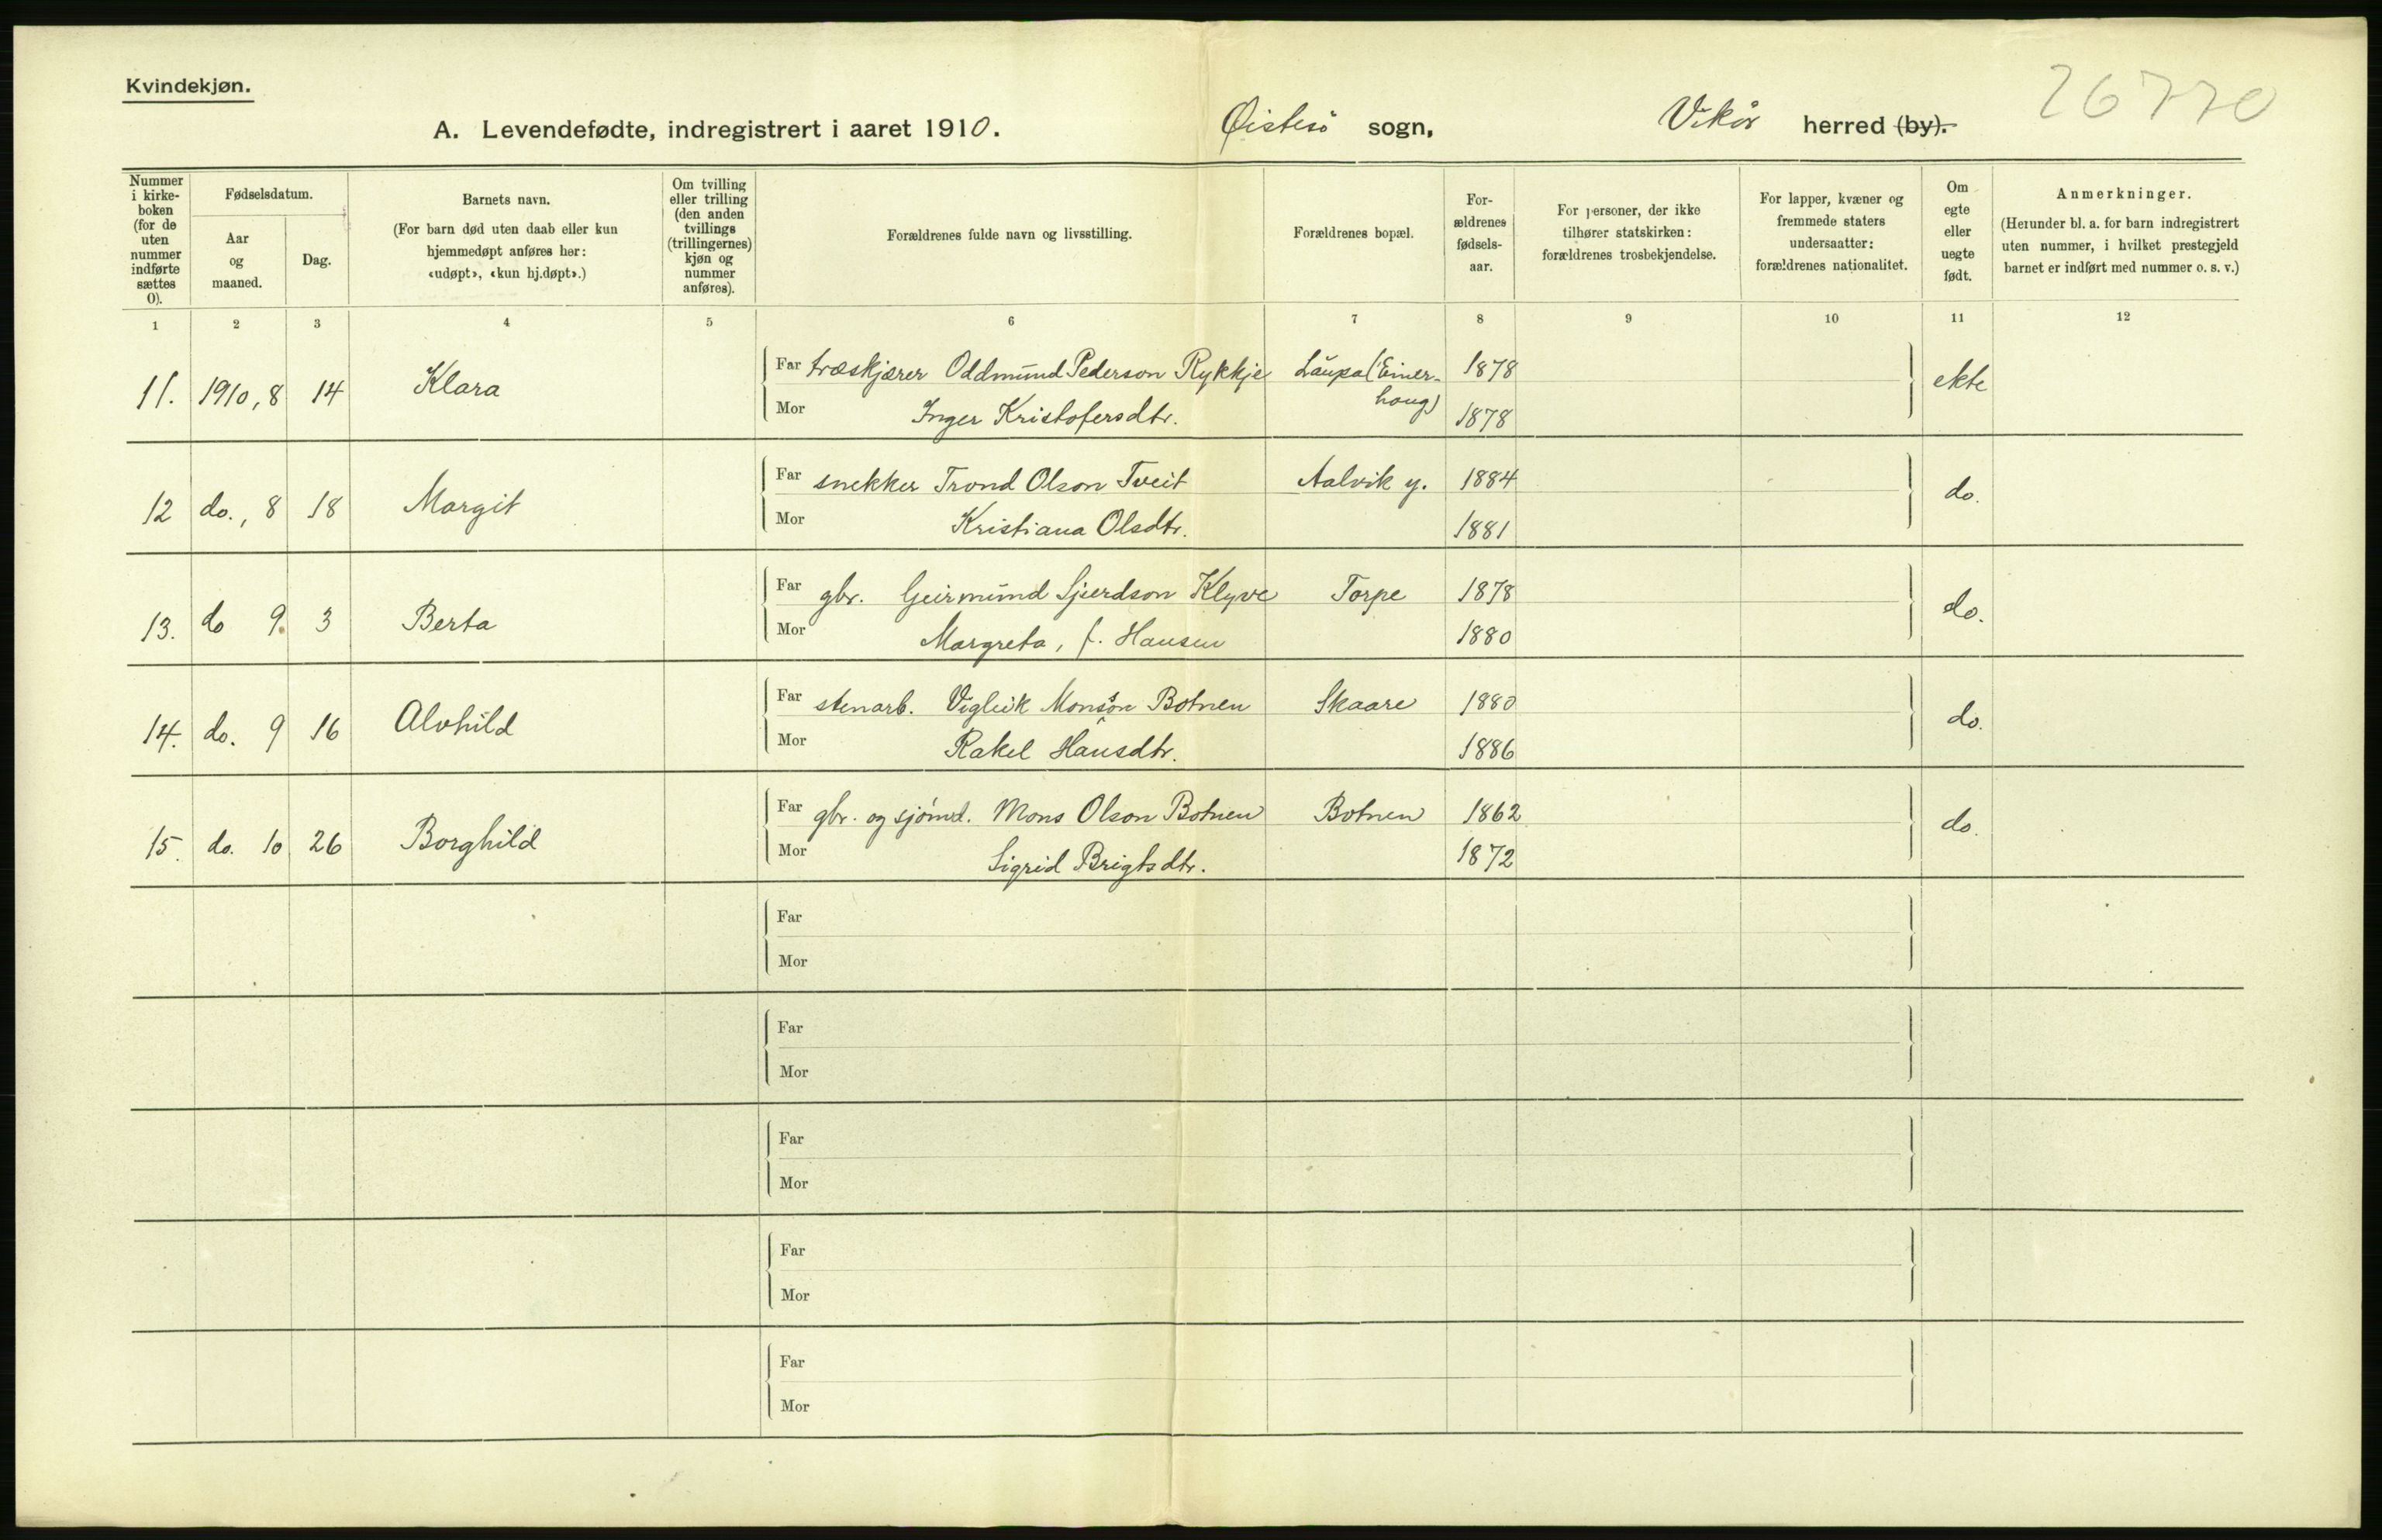 Kvindekjøn.
26770
A. Levendefødte, indregistrert i aaret 1910. Øistesö sogn, Vikör herred (by).
Nummer i kirke-boken (for de uten nummer indførte sættes 0).
Fødselsdatum.
Aar og maaned.
Dag.
Barnets navn.
(For barn død uten daab eller kun hjemmedøpt anføres her: «udøpt», «kun hj.døpt».)
Om tvilling eller trilling (den anden tvillings (trillingernes) kjøn og nummer anføres).
Forældrenes fulde navn og livsstilling.
Forældrenes bopæl.
For-ældrenes fødsels-aar.
For personer, der ikke tilhører statskirken: forældrenes trosbekjendelse.
For lapper, kvæner og fremmede staters undersaatter: forældrenes nationalitet.
Om egte eller uegte født.
Anmerkninger.
(Herunder bl. a. for barn indregistrert uten nummer, i hvilket prestegjeld barnet er indført med nummer o. s. v.)
1 2 3 4 5 6 7 8 9 10 11 12
11. 1910, 8 14 Klara Far træskjærer Oddmund Pederson Rykkje Laupsa (Einer-haug) 1878 ekte
Mor Inger Kristofersdtr. 1878
12 do., 8 18 Margit Far snekker Trond Olson Tveit Aalvik y. 1884 do.
Mor Kristiana Olsdtr. 1881
13. do 9. 3 Berta Far gbr. Geirmund Sjurdson Klyve Torpe 1878 do.
Mor Margreta, f. Hansen 1880
14. do. 9 16 Alvhild Far stenarb. Vigleik Monsson Botnen Skaare 1880 do.
Mor Rakel Hansdtr. 1886
15. do. 10 26 Borghild Far gbr. og sjömd. Mons Olson Botnen Botnen 1862 do.
Mor Sigrid Brigtsdtr. 1872
Far
Mor
Far
Mor
Far
Mor
Far
Mor
Far
Mor